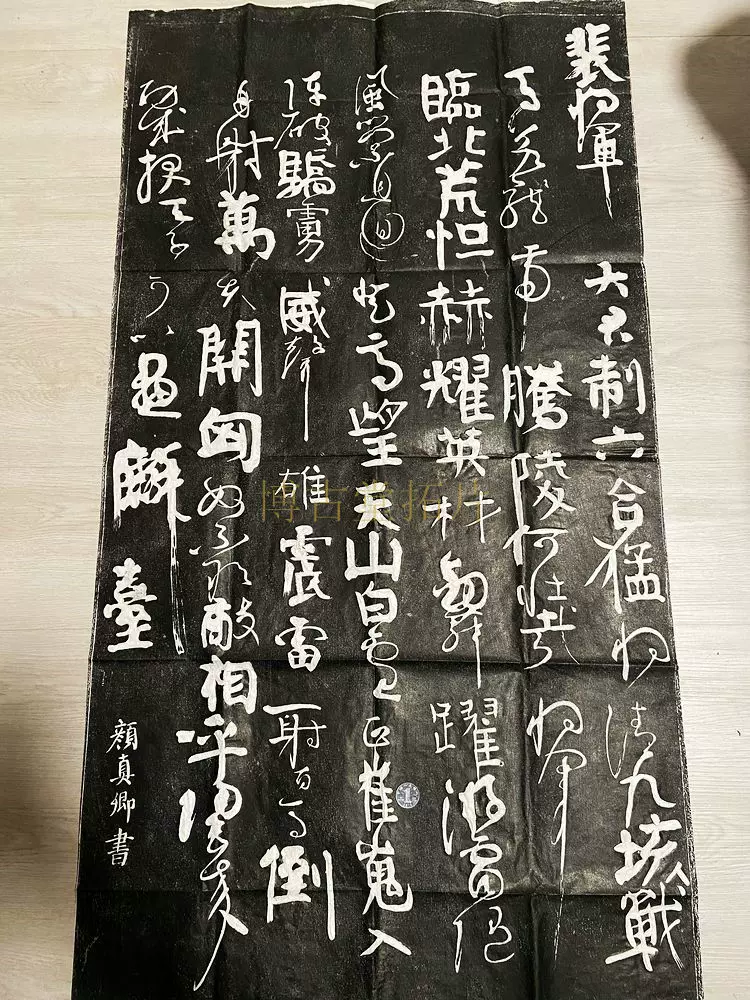 裴將軍
大君制六合猛將清九垓戰
馬若龍虎騰陵何壯哉將軍
臨北荒怛赫耀英材劍舞躍游電隨
風縈且迴登高望天山白雲正崔嵬入
陣破驕虜威聲雄震雷一射百馬倒
再射萬夫開匈奴不敢敵相呼歸去來
功成報天子可以畫麟臺
顏真卿書
博古堂拓片